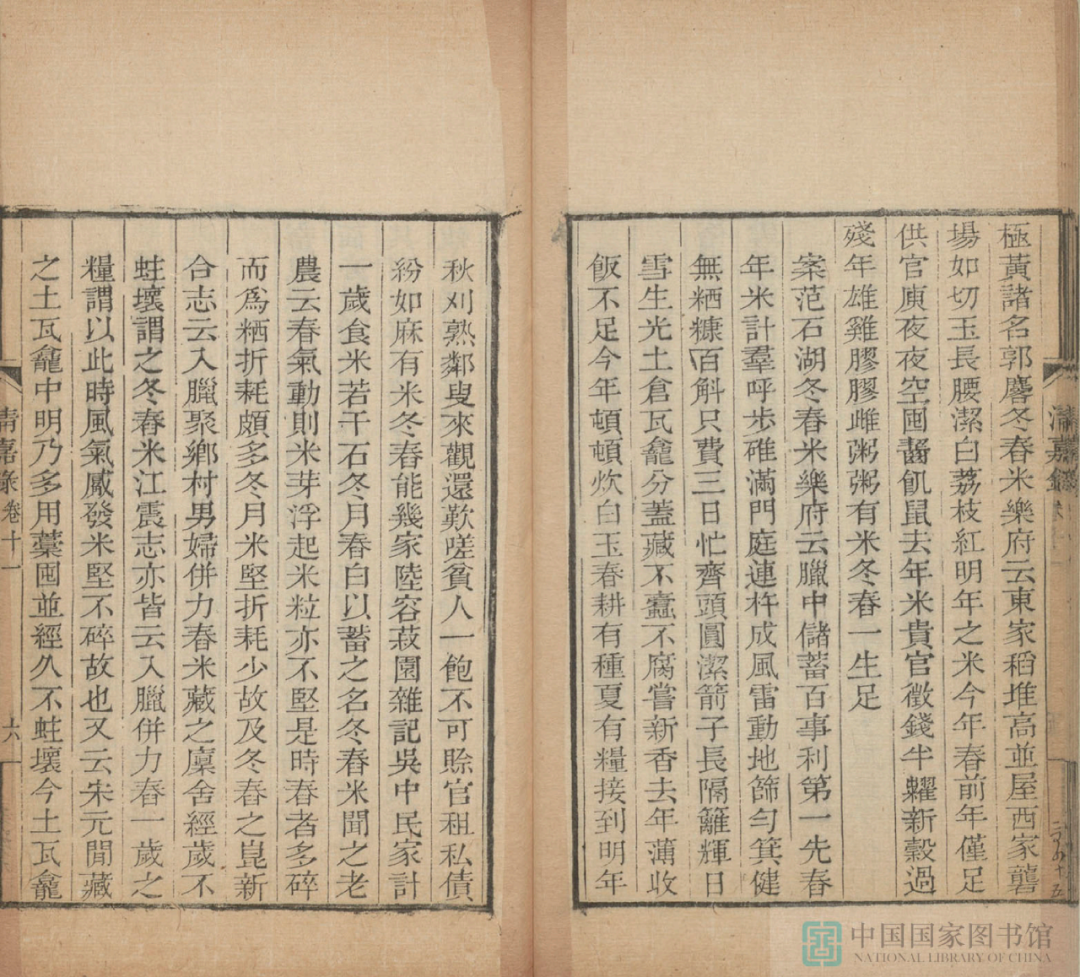 極黃諸名郭麐冬舂米樂府云東家稻堆高並屋西家礱
場如切玉長腰潔白荔枝紅明年之米今年舂前年僅足
供官庾夜夜空囤齧飢鼠去年米貴官徵錢半糶新穀過
殘年雄雞膠膠雌粥粥有米冬舂一生足
案范石湖冬舂米樂府云臘中儲蓄百事利第一先舂
年米計羣呼步碓滿門庭連杵成風雷動地篩勻箕健
無粞糠百斛只費三日忙齊頭圓潔箭子長隔籬輝日
雪生光土倉瓦龕分蓋藏不蠹不腐嘗新香去年蒲收
飯不足今年頓頓炊白玉春耕有種夏有糧接到明年
秋刈熟鄰叟來觀還歎嗟貧人一飽不可賒官租私債
紛如麻有米冬舂能幾家陸容菽園雜記吳中民家計
一歲食米若干石冬月舂白以蓄之名冬舂米聞之老
農云春氣動則米芽浮起米粒亦不堅是時舂者多碎
而爲粞折耗頗多冬月米堅折耗少故及冬舂之崑新
合志云入臘聚鄉村男婦併力舂米藏之廩舍經歲不
蛀壞謂之冬舂米江震志亦皆云入臘併力舂一歲之
糧謂以此時風氣觱發米堅不碎故也又云宋元閒藏
之土瓦龕中明乃多用藁囤並經久不蛀壞今土瓦龕
清嘉錄卷十一
六
清嘉錄
中国国家图书馆
NATIONAL LIBRARY OF CHINA